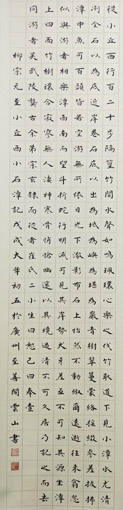 從小丘西行百二十步隔篁竹聞水聲如鳴珮環心樂之伐竹取道下見小潭水尤清
冽全石以為底近岸卷石底以出為坻為嶼為嵁為巖青樹翠蔓蒙絡搖綴參差披拂
潭中魚可百許頭皆若空游無所依日光下澈影布石上怡然不動俶爾遠逝往來翕忽
似與游者相樂潭西南而望斗折蛇行明滅可見其岸勢犬牙差互不可知其源坐潭
上四面竹樹環合寂寥無人淒神寒骨悄愴幽邃以其境過清不可久居乃記之而去
同游者吳武陵龔古余弟宗玄隸而從者崔氏二小生曰恕己曰奉壹
柳宗元至小丘西小石潭記戊戌大年初五於廣州至善閣雲山書